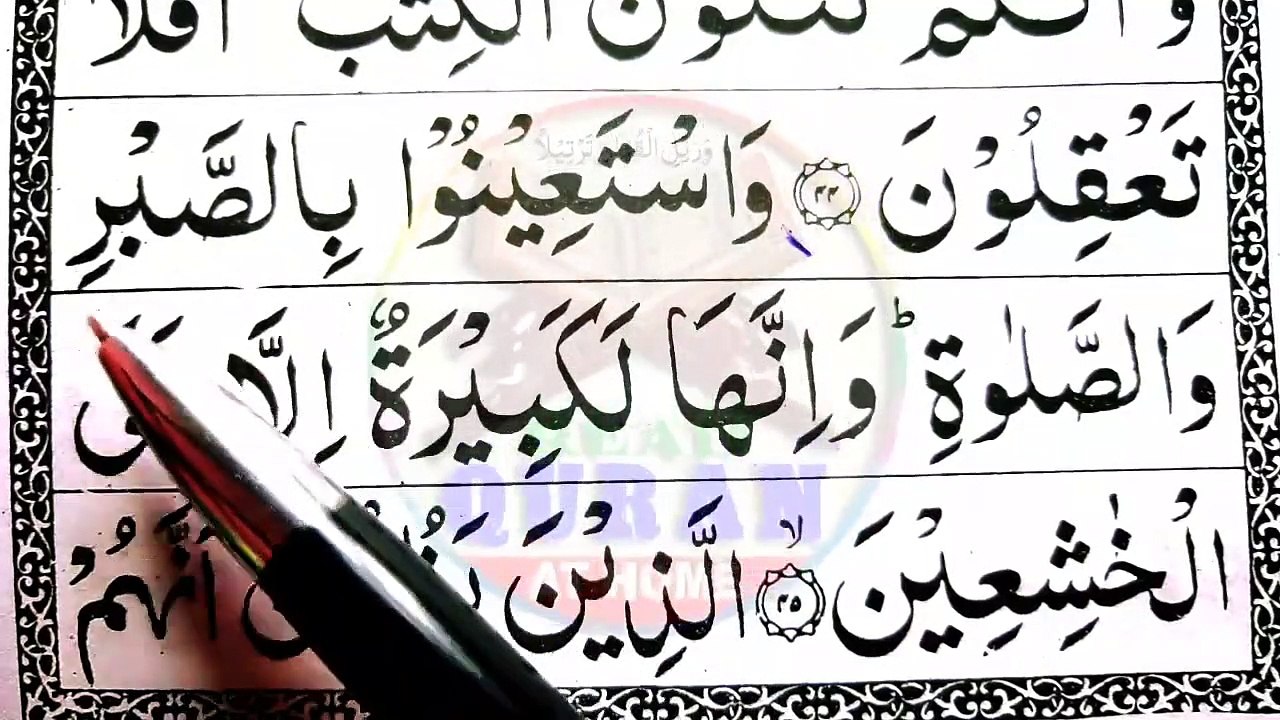 وَاَنْتُمْ تَتْلُوْنَ الْكِتٰبَ اَفَلَا
تَعْقِلُوْنَ ﴿۴۴﴾ وَاسْتَعِيْنُوْا بِالصَّبْرِ
وَالصَّلٰوةِ ؕ وَاِنَّهَا لَكَبِيْرَةٌ اِلَّا
الْخٰشِعِيْنَ ﴿۴۵﴾ ۙ الَّذِيْنَ اَنَّهُمْ
وَرَتِّلِ الْقُرْاٰنَ تَرْتِيْلًا
READ
QURAN
AT HOME